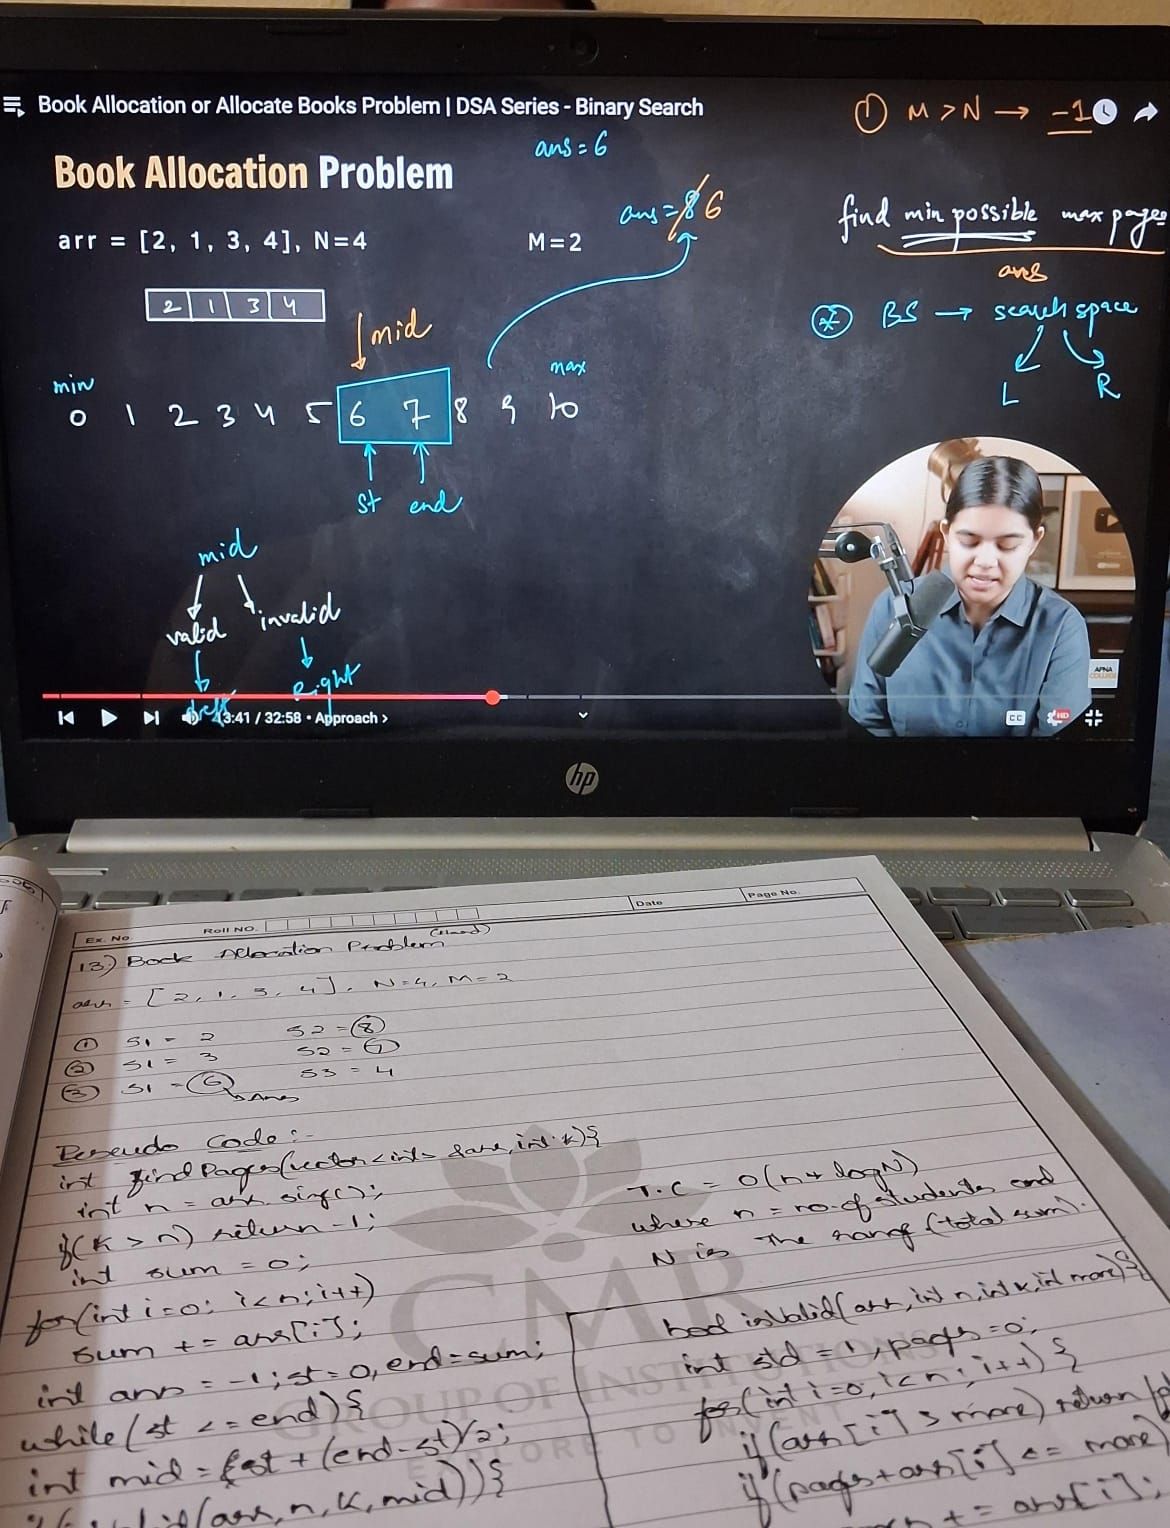 Book Allocation or Allocate Books Problem | DSA Series - Binary Search
① M > N → -1
Book Allocation Problem
ans = 6
ans = 8 6
find min possible max pages
ans
arr = [2, 1, 3, 4], N=4
M=2
2 1 3 4
mid
BS → search space
L R
min
max
0 1 2 3 4 5 6 7 8 9 10
st end
mid
valid invalid
left right
3:41 / 32:58 • Approach >
CC
HD
APNA
COLLEGE
hp
Ex. No.
Roll No.
Date
Page No.
13) Book Allocation Problem (Hard)
arr = [2, 1, 3, 4], N=4, M=2
① S1 = 2 S2 = 8
② S1 = 3 S2 = 7
③ S1 = 6 S3 = 4
Ans
Pseudo Code :-
int findPages(vector<int> &arr, int k){
int n = arr.size();
if(k > n) return -1;
int sum = 0;
for(int i=0; i<n; i++)
sum += arr[i];
int ans = -1; st = 0, end = sum;
while(st <= end){
int mid = st + (end-st)/2;
(arr, n, k, mid)){
T.C = O(n + logN)
where n = no. of students and
N is the range (total sum).
bool isValid(arr, int n, int k, int more){
int std = 1, pages = 0;
for(int i=0; i<n; i++){
if(arr[i] > more) return
if(pages + arr[i] <= more)
+= arr[i];
CMR
GROUP OF INSTITUTIONS
EXPLORE TO INVENT